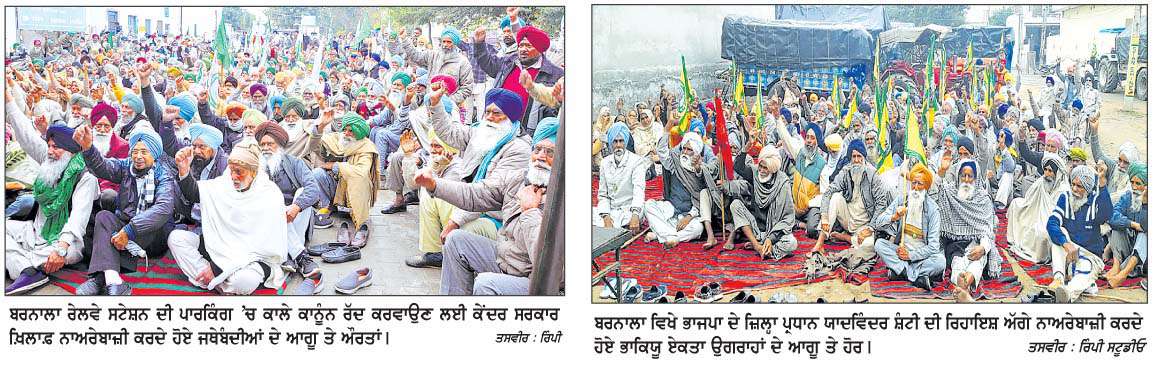 ਬਰਨਾਲਾ ਰੇਲਵੇ ਸਟੇਸ਼ਨ ਦੀ ਪਾਰਕਿੰਗ 'ਚ ਕਾਲੇ ਕਾਨੂੰਨ ਰੱਦ ਕਰਵਾਉਣ ਲਈ ਕੇਂਦਰ ਸਰਕਾਰ
ਖ਼ਿਲਾਫ਼ ਨਾਅਰੇਬਾਜ਼ੀ ਕਰਦੇ ਹੋਏ ਜਥੇਬੰਦੀਆਂ ਦੇ ਆਗੂ ਤੇ ਔਰਤਾਂ। ਤਸਵੀਰ : ਰਿੰਪੀ
ਬਰਨਾਲਾ ਵਿਖੇ ਭਾਜਪਾ ਦੇ ਜ਼ਿਲ੍ਹਾ ਪ੍ਰਧਾਨ ਯਾਦਵਿੰਦਰ ਸ਼ੰਟੀ ਦੀ ਰਿਹਾਇਸ਼ ਅੱਗੇ ਨਾਅਰੇਬਾਜ਼ੀ ਕਰਦੇ
ਹੋਏ ਭਾਕਿਯੂ ਏਕਤਾ ਉਗਰਾਹਾਂ ਦੇ ਆਗੂ ਤੇ ਹੋਰ। ਤਸਵੀਰ : ਰਿੰਪੀ ਸਟੂਡੀਓ